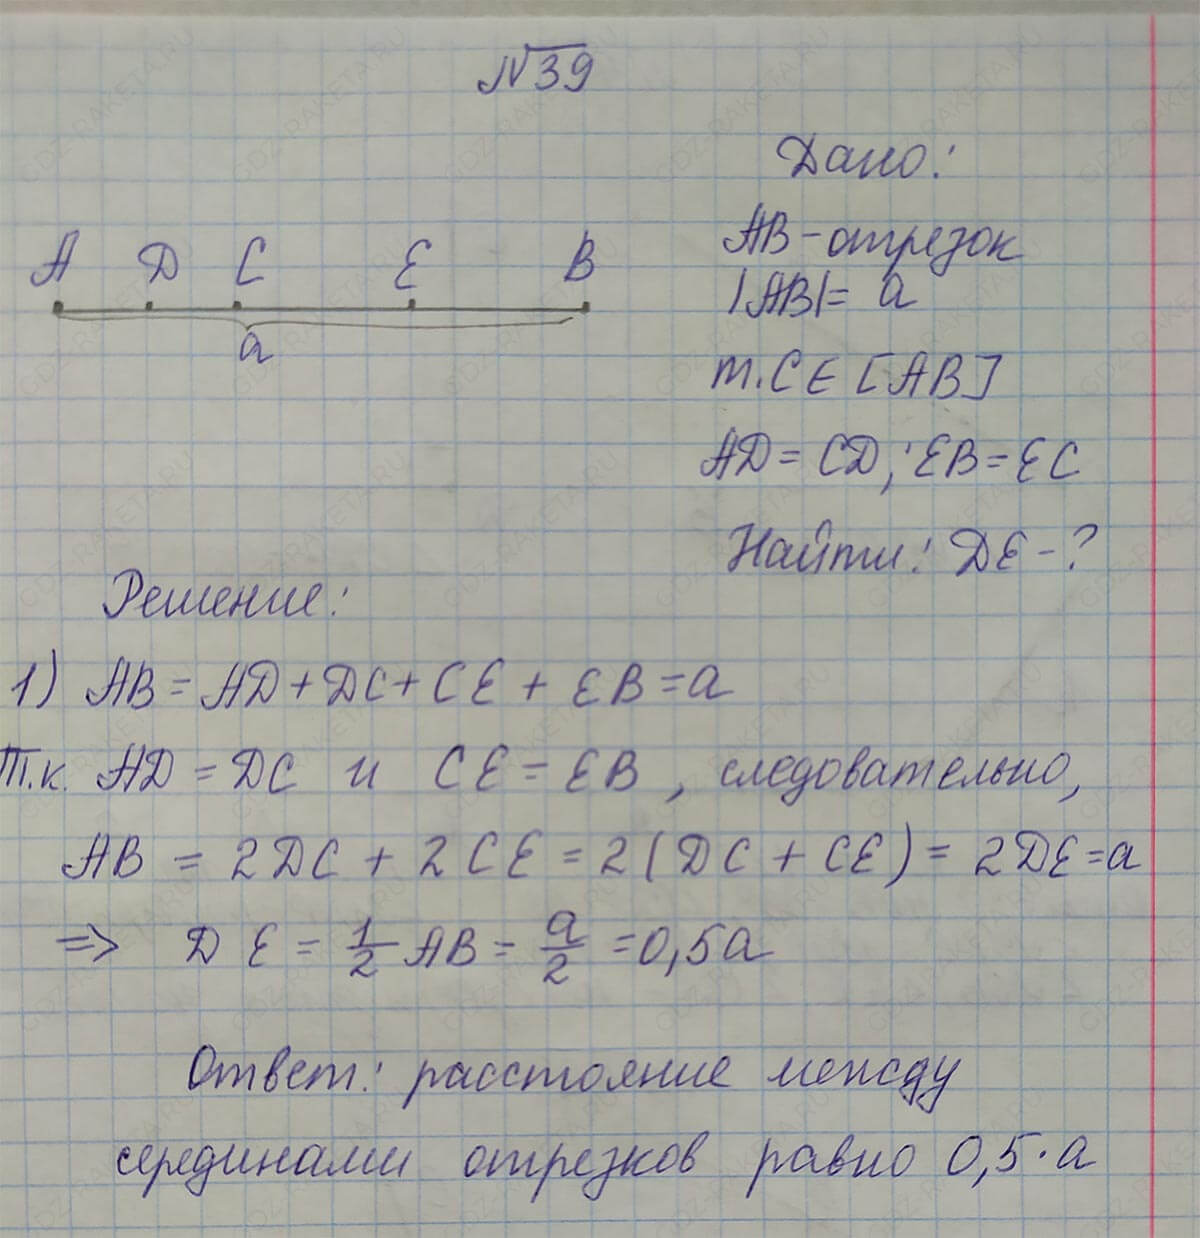 №39
Дано:
AB-отрезок
|AB|= a
т.C∈[AB]
AD=CD; EB=EC
Найти: DE-?
A D C E B
a
Решение:
1) AB=AD+DC+CE+EB=a
Т.к. AD=DC и CE=EB, следовательно,
AB=2DC+2CE=2(DC+CE)=2DE=a
=> DE=1/2 AB=a/2=0,5a
Ответ: расстояние между
серединами отрезков равно 0,5·a
GDZ-RAKETA.RU